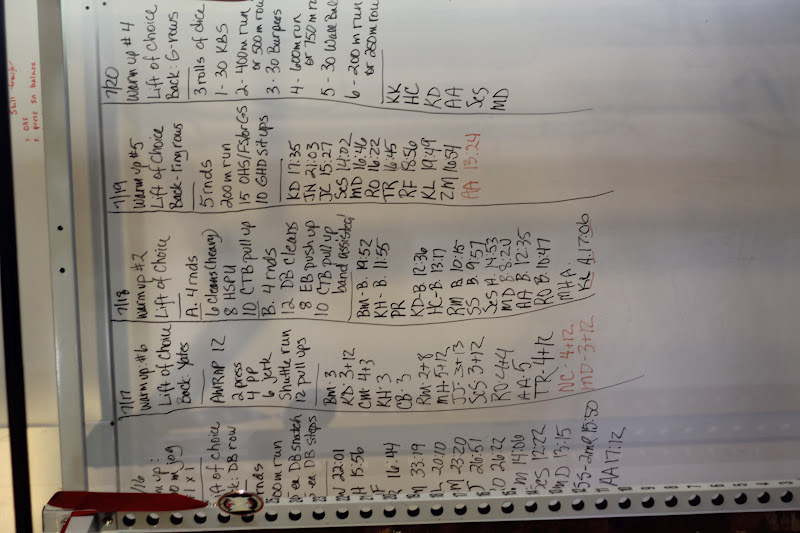 7/16
jog
1 x 1
of choice
DB row
rnds
run
DB snatch
DB steps
22:01
15:56
16:44
33:19
20:10
23:20
26:51
26:22
14:06
SeS 12:22
MD 13:15
SS-2mR 15:50
AA 17:12
7/17
Warm up #6
Lift of choice
Back: Yates
AMRAP 12
2 press
4 PP
6 jerk
Shuttle run
12 pull ups
Bm 3
KD 3+12
Cm 4+3
KH 3
CB 3
Rm 2+8
MH 5+12
JJ 3+13
SeS 3+12
RO 4+4
AA-5
TR-4+12
NC-4+12
MD-3+12
7/18
Warm up #2
Lift of choice
A. 4 rnds
6 cleans (heavy)
8 HSPU
10 CTB pull up
B. 4 rnds
12 DB cleans
8 EB push up
10 CTB pull up
band assisted
Bm-B. 19:52
KH-B. 11:55
PR
KD-B. 12:36
HC-B. 13:17
RM B 10:15
SS B. 9:57
SeS A. 14:53
MD B 8:20
AA B. 12:35
RO B. 10:47
MH A.
KL A. 17:06
7/19
Warm up #5
Lift of choice
Back-ring rows
5 rnds
200 m run
15 OHS/FS/or GS
10 GHD situps
KD 17:35
JN 21:03
JC 15:27
SeS 14:02
MD 16:46
RO 16:22
TR 16:45
RF 18:56
KL 19:49
ZM 16:54
AA 13:24
7/20
Warm up #4
Lift of choice
Back: G-rows
3 rolls of dice
1- 30 KBS
2- 400m run
or 500m row
3- 30 Burpees
4- 600m run
or 750m row
5- 30 Wall Bal
6- 200m run
or 250m row
KK
HC
KD
AA
SeS
MD